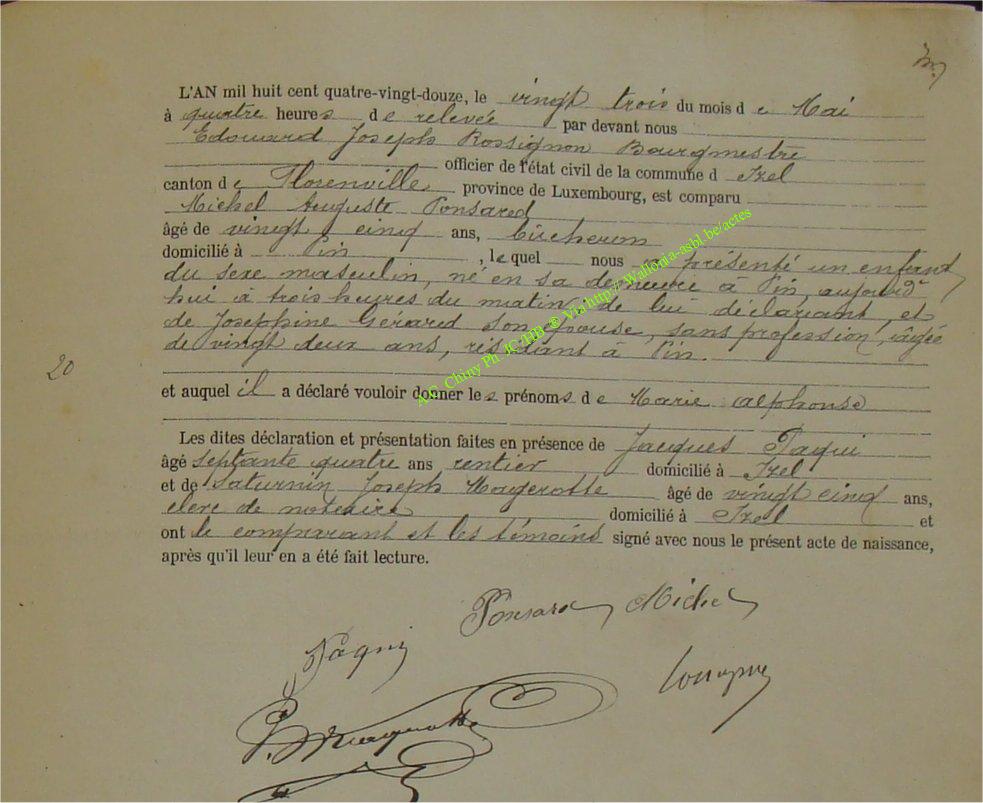 L'AN mil huit cent quatre-vingt-douze, le vingt trois du mois de Mai
à quatre heures de relevée par devant nous
Edouard Joseph Rossignon Bourgmestre
officier de l'état civil de la commune d Izel
canton de Florenville province de Luxembourg, est comparu
Michel Auguste Ponsard
âgé de vingt cinq ans, bûcheron
domicilié à Pin, lequel nous a présenté un enfant
du sexe masculin, né en sa demeure à Pin, aujourd'
hui à trois heures du matin, de lui déclarant, et
de Josephine Gérard son épouse, sans profession, âgée
de vingt deux ans, résidant à Pin.
20
et auquel il a déclaré vouloir donner les prénoms de Marie Alphonse
Les dites déclaration et présentation faites en présence de Jacques Paqui
âgé septante quatre ans rentier domicilié à Izel
et de Saturnin Joseph Magerotte âgé de vingt cinq ans,
clerc de notaire domicilié à Izel et
ont le comparant et les témoins signé avec nous le présent acte de naissance,
après qu'il leur en a été fait lecture.
Ponsard Michel
Paqui
A.G. Chiny Ph JC/HB ® Via http://Wallonia-asbl.be/actes